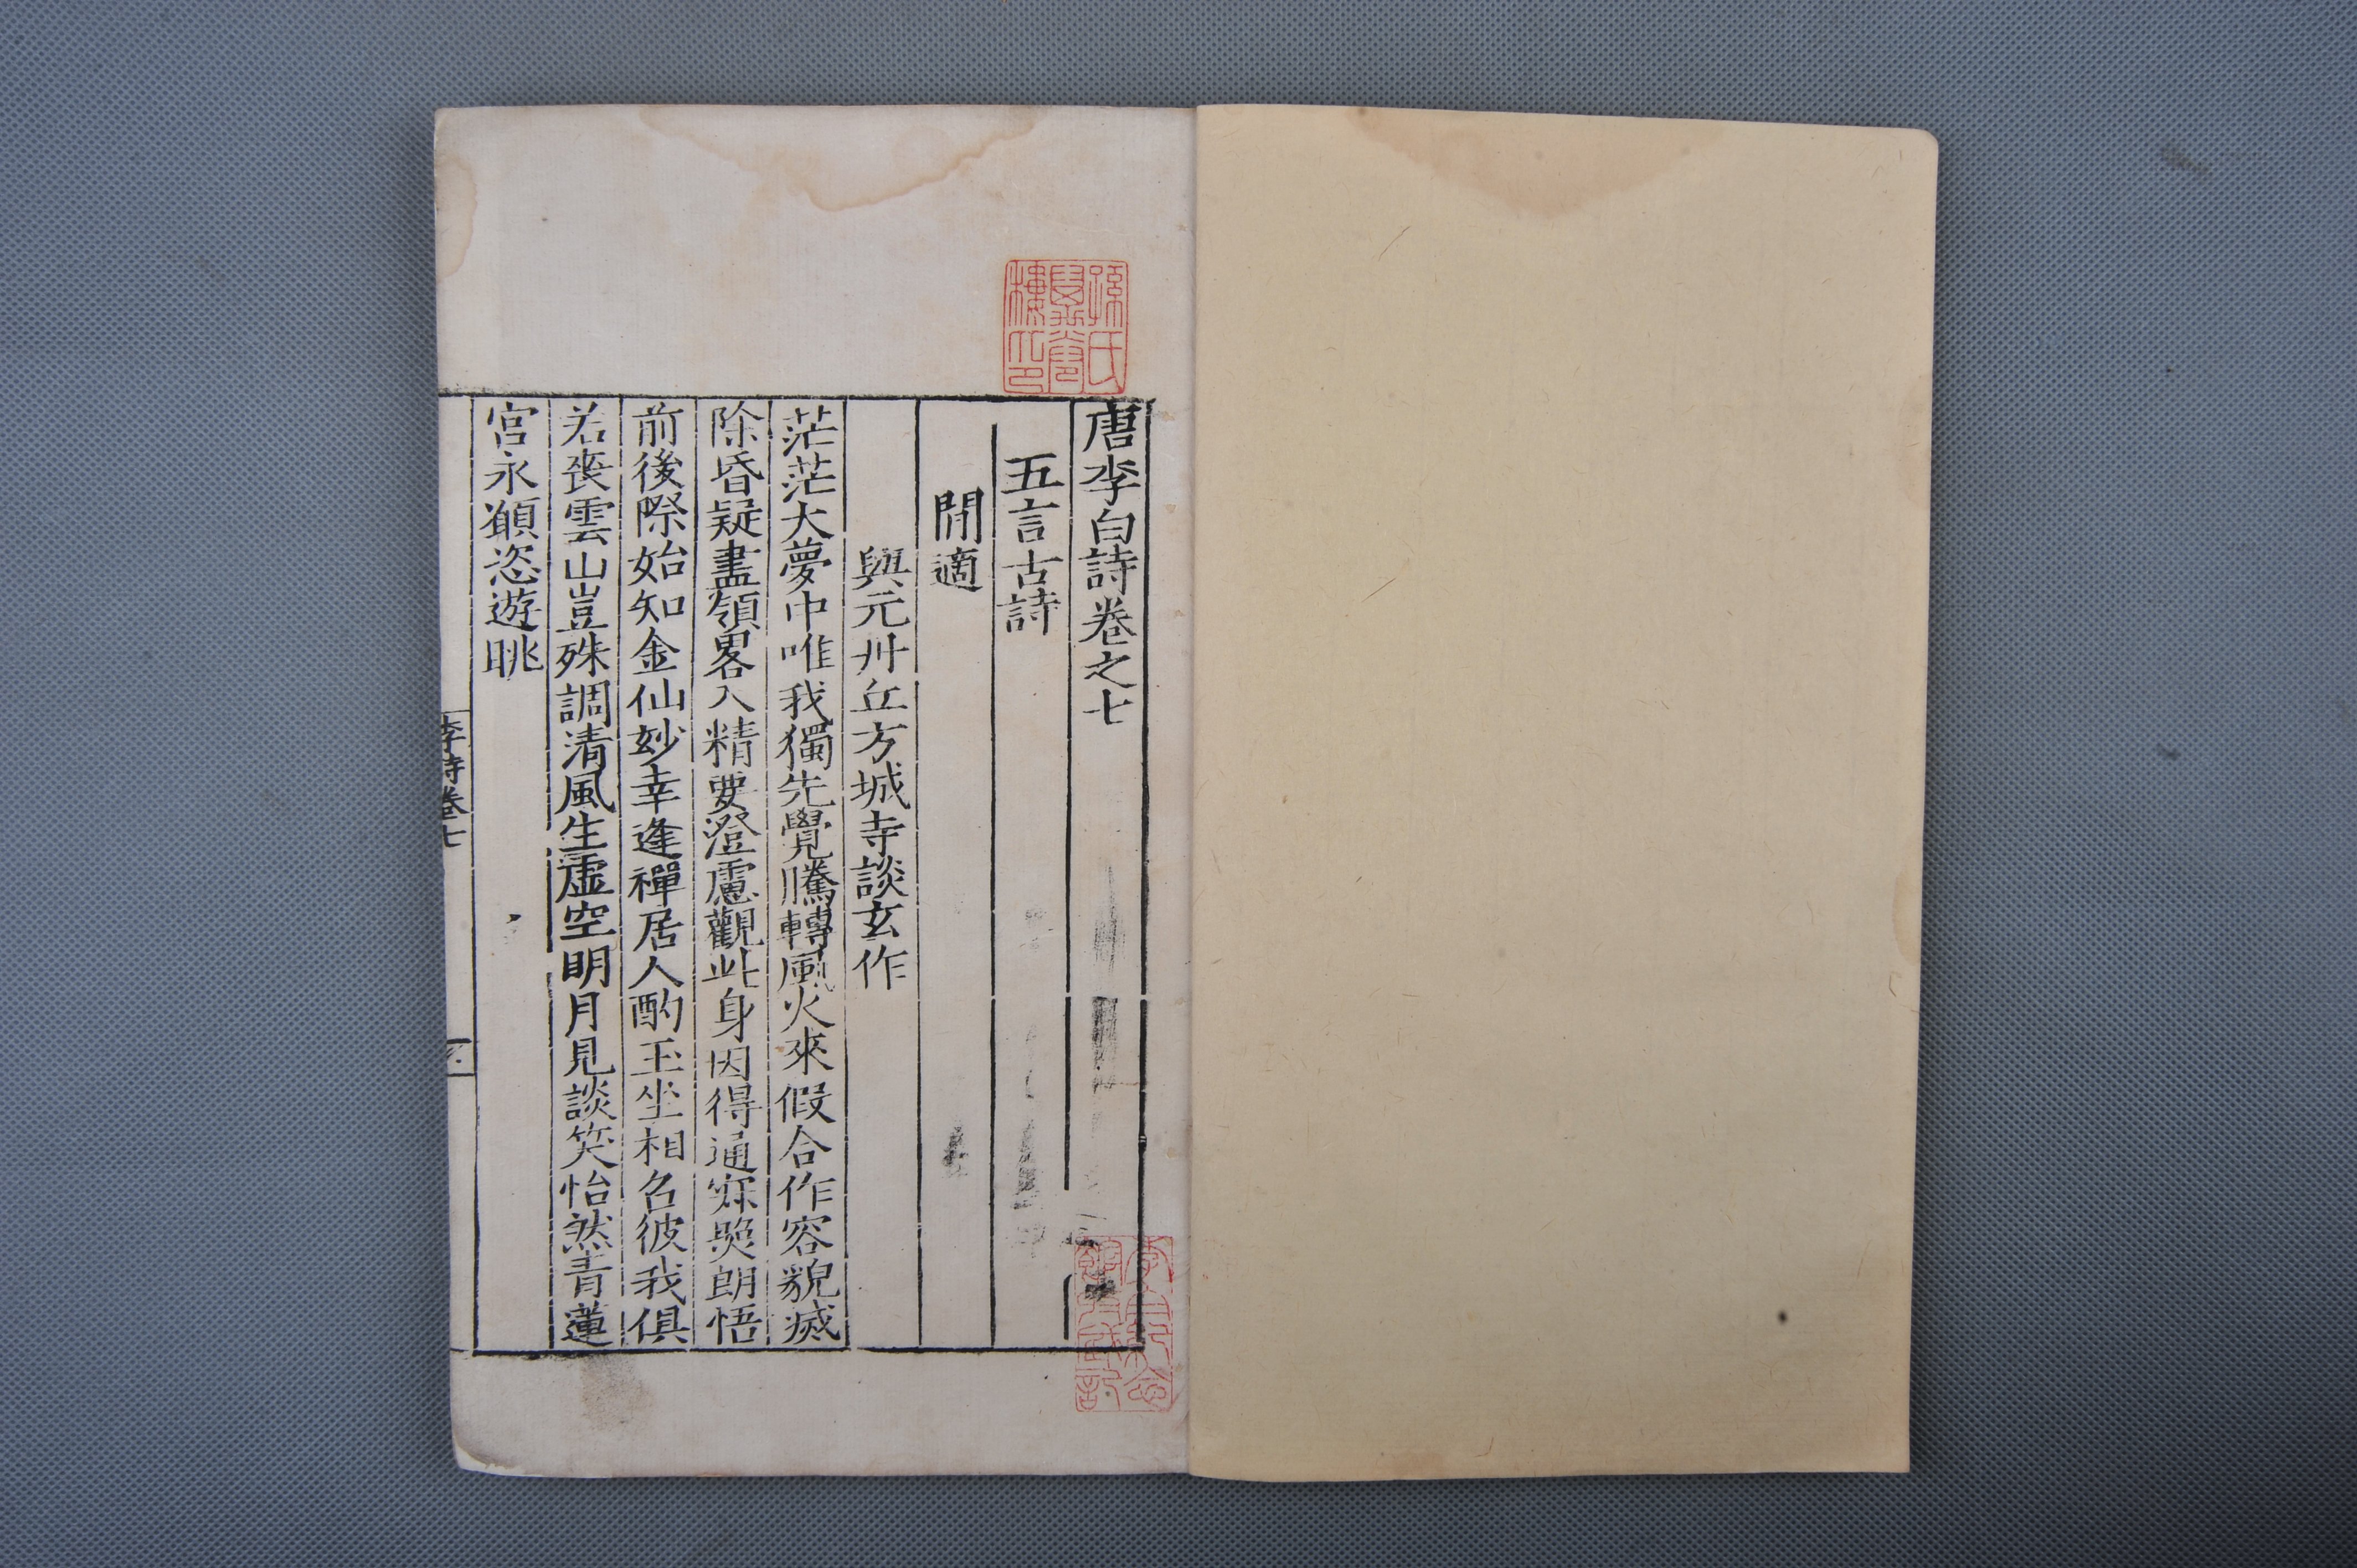 唐李白詩卷之七
五言古詩
閒適
與元丹丘方城寺談玄作
茫茫大夢中唯我獨先覺騰轉風火來假合作容貌滅
除昏疑盡領畧入精要澄慮觀此身因得通寂照朗悟
前後際始知金仙妙幸逢禪居人酌玉坐相召彼我俱
若喪雲山豈殊調清風生虛空明月見談笑怡然青蓮
宮永願恣遊眺
李詩卷七
孫氏
樓印